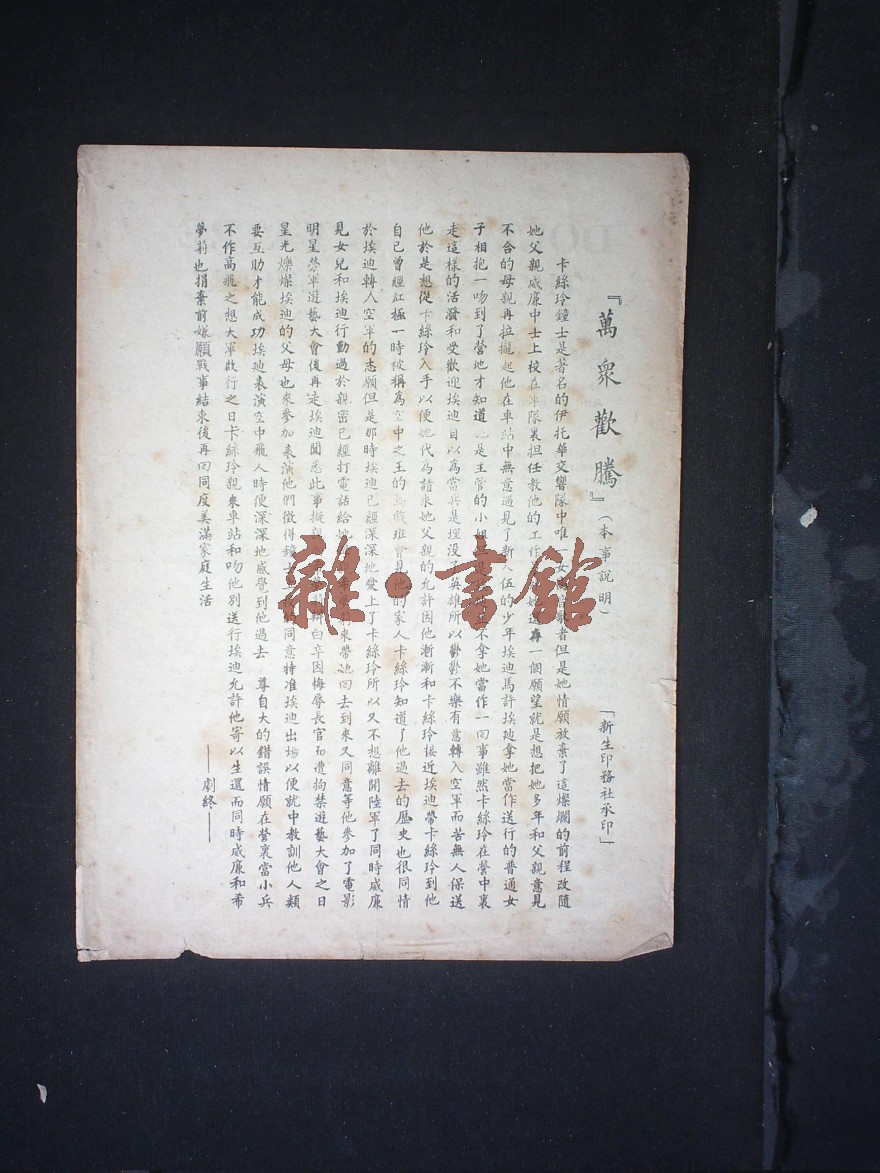 『萬眾歡騰』（本事說明）
「新生印務社承印」
卡絲玲鐘士是著名的伊托華交響隊中唯一女高音歌者但是她情願放棄了這燦爛的前程改隨
她父親威廉中士上校在軍隊裏担任教他的工作她還再一個願望就是想把她多年和父親意見
不合的母親再拉攏起他在車站中無意遇見了新入伍的少年埃迪馬許埃迪拿她當作送行的普通女
子相抱一吻到了營地才知道是主管的小姐不拿她當作一回事雖然卡絲玲在營中裏
走這樣的活潑和受歡迎埃迪自以為當兵是埋没了英雄所以鬱鬱不樂有意轉入空軍而苦無人保送
他於是想從卡絲玲入手以便她代為請求她父親的允許因他漸漸和卡絲玲接近埃迪帶卡絲玲到他
自己曾經紅極一時被稱為空中之王的班會見他的家人卡絲玲知道了他過去的歷史也很同情
於埃迪轉入空軍的志願但是那時埃迪已經深深地愛上了卡絲玲所以又不想離開陸軍了同時威廉
見女兒和埃迪行動過於親密已經打電話給她來帶她回去到來又同意等他參加了電影
明星勞軍遊藝大會後再走埃迪聞悉此事擬辯白卒因侮辱長官而遭拘禁遊藝大會之日
星光爍爍埃迪的父母也來參加表演他們徵得鐘士同意特准埃迪出場以便就中教訓他人類
要互助才能成功埃迪表演空中飛人時便深深地感覺到他過去尊自大的錯誤情願在營裏當小兵
不作高飛之想大軍啟行之日卡絲玲親來車站和吻他別送行埃迪允許他寄以生還而同時威廉和希
夢莉也捐棄前嫌願戰事結束後再回同度美滿家庭生活
——劇終——
雜·書館